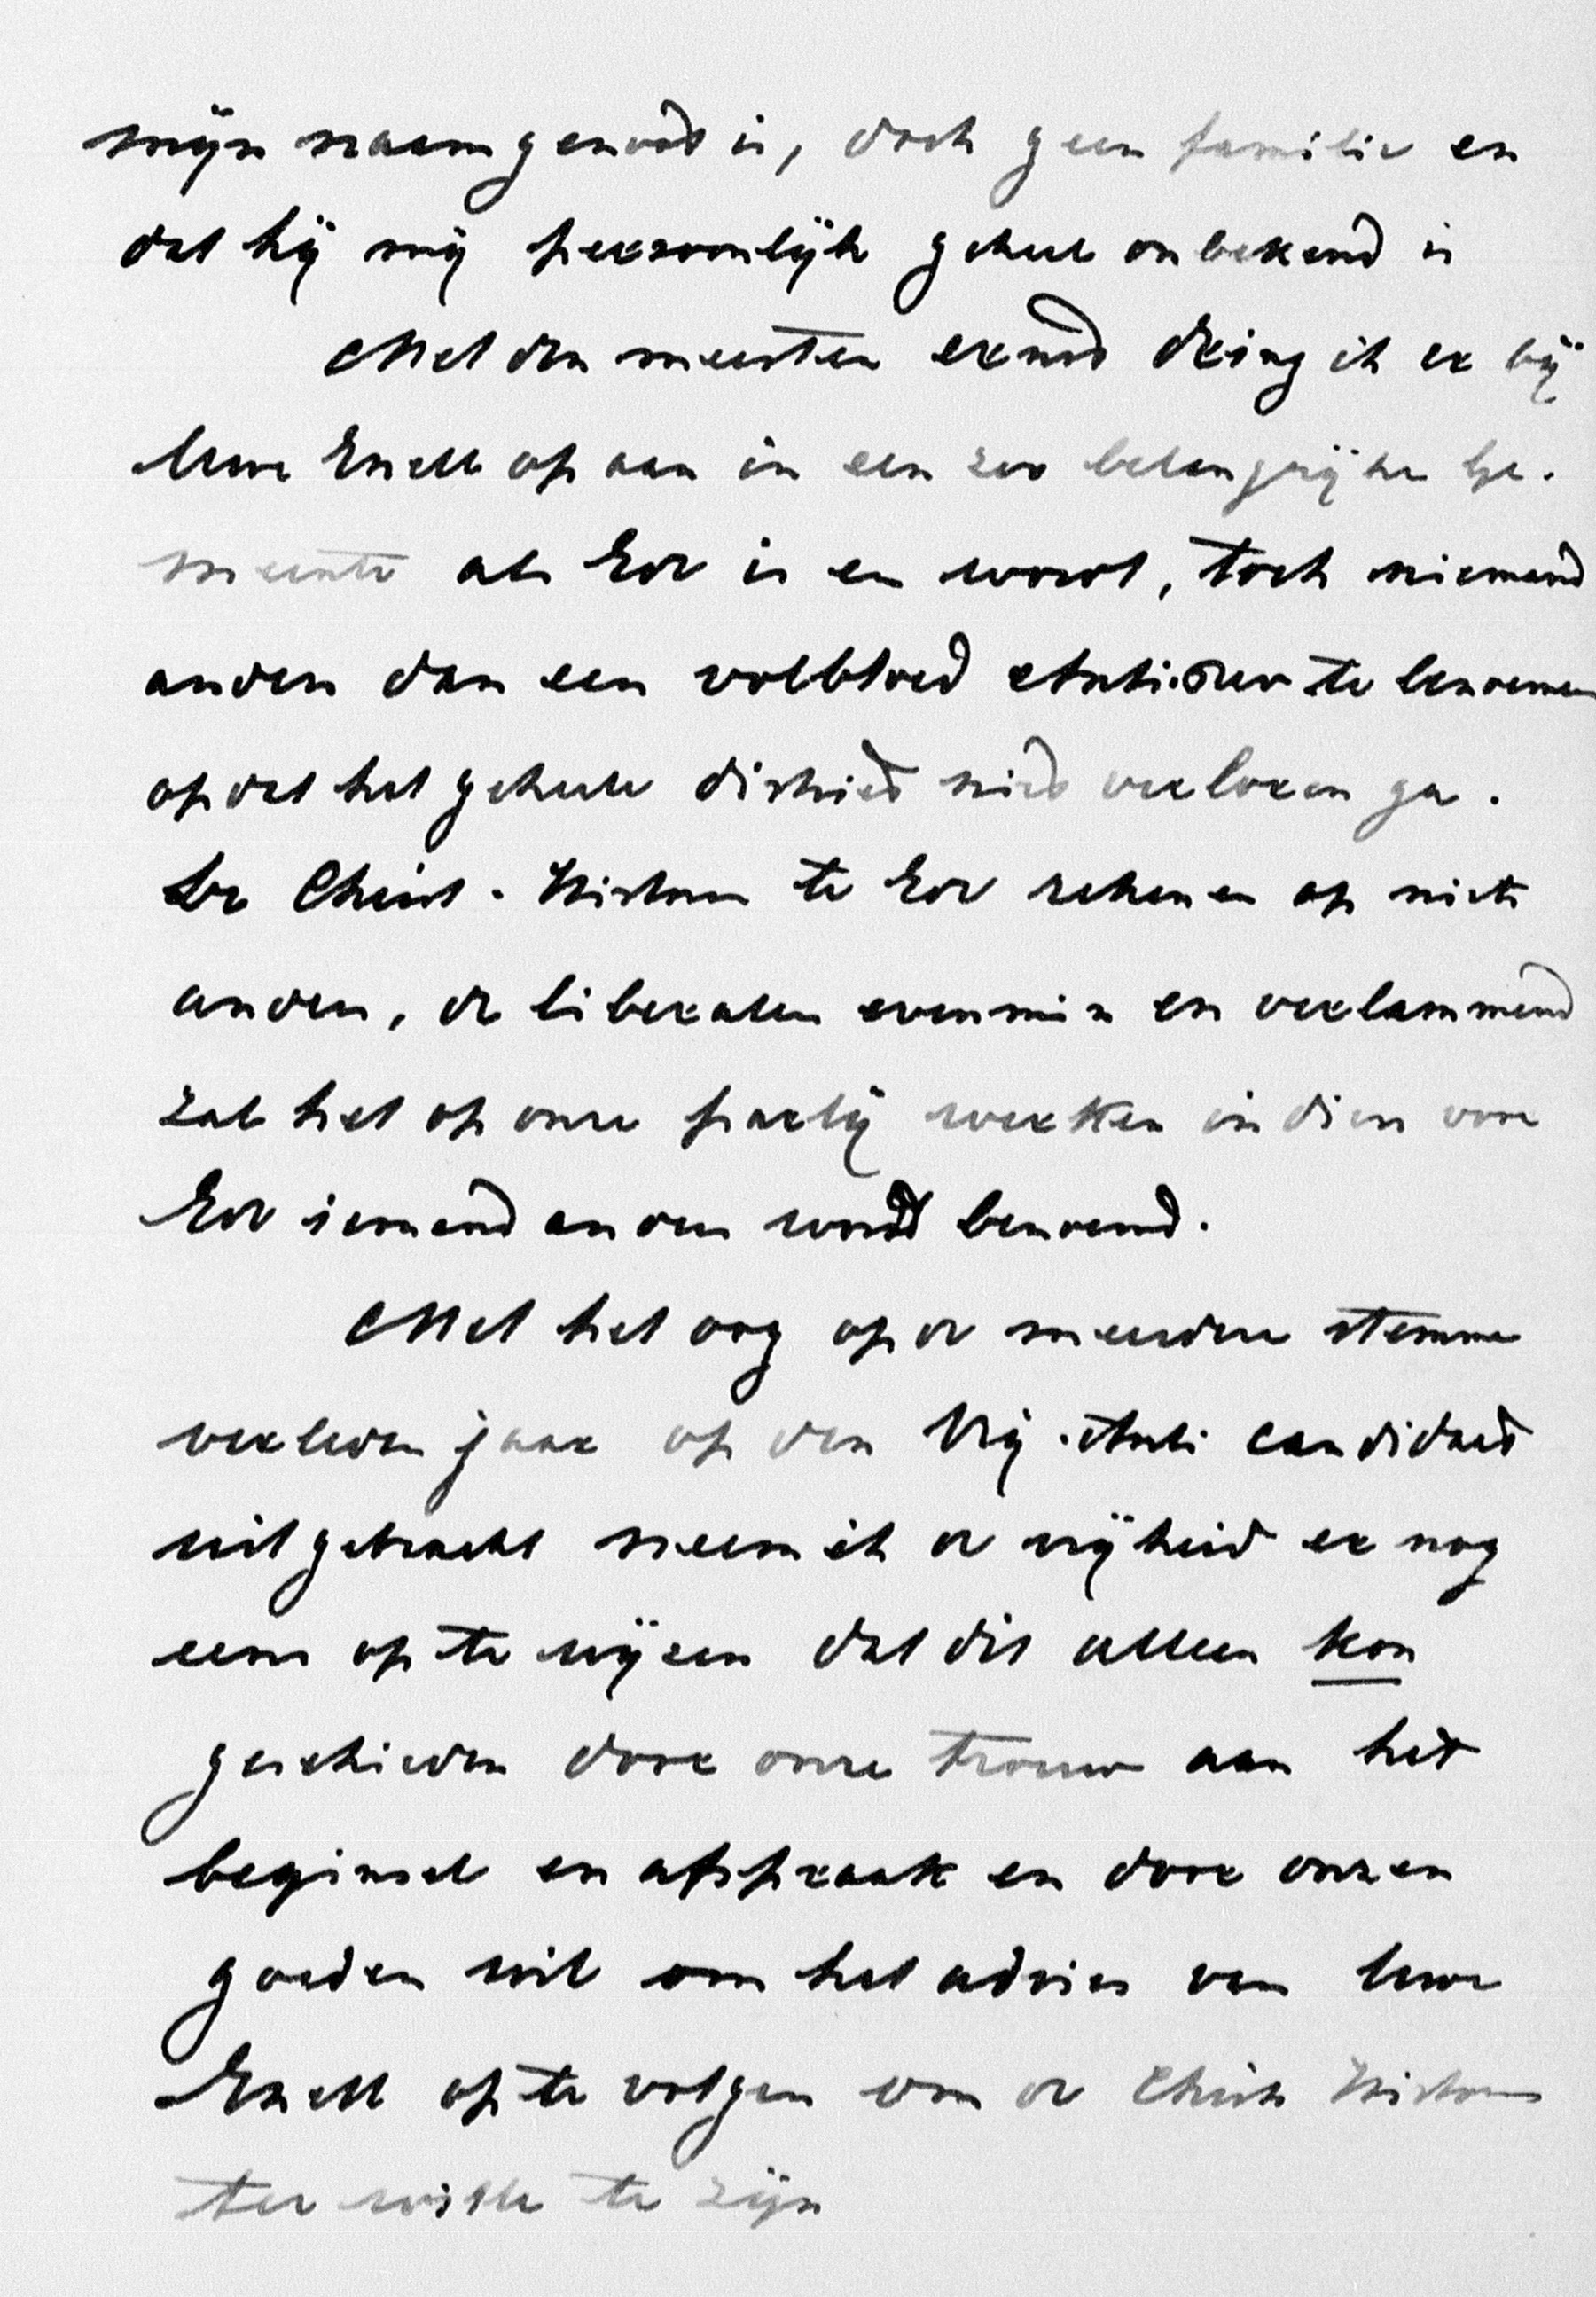 mijn naamgenoot is, doch geen familie en
dat hij mij persoonlijk geheel onbekend is
Met den meesten ernst dring ik er bij
Uwe Excell op aan in een zoo belangrijke Ge-
meente als Ede is en wordt, toch niemand
anders dan een volbloed Anti-Rev te benoemen
opdat het geheele district niet verloren ga.
De Christ. Histor. te Ede rekenen op niets
anders, de liberalen evenmin en verlammend
zal het op onze partij werken indien voor
Ede iemand anders wordt benoemd.
Met het oog op de meerdere stemmen
verleden jaar op den Vrij-Anti candidaat
uitgebracht neem ik de vrijheid er nog
eens op te wijzen dat dit alleen kon
geschieden door onze trouw aan het
beginsel en afspraak en door onzen
goeden wil om het advies van Uwe
Excell op te volgen om de Christ Histor
ter wille te zijn